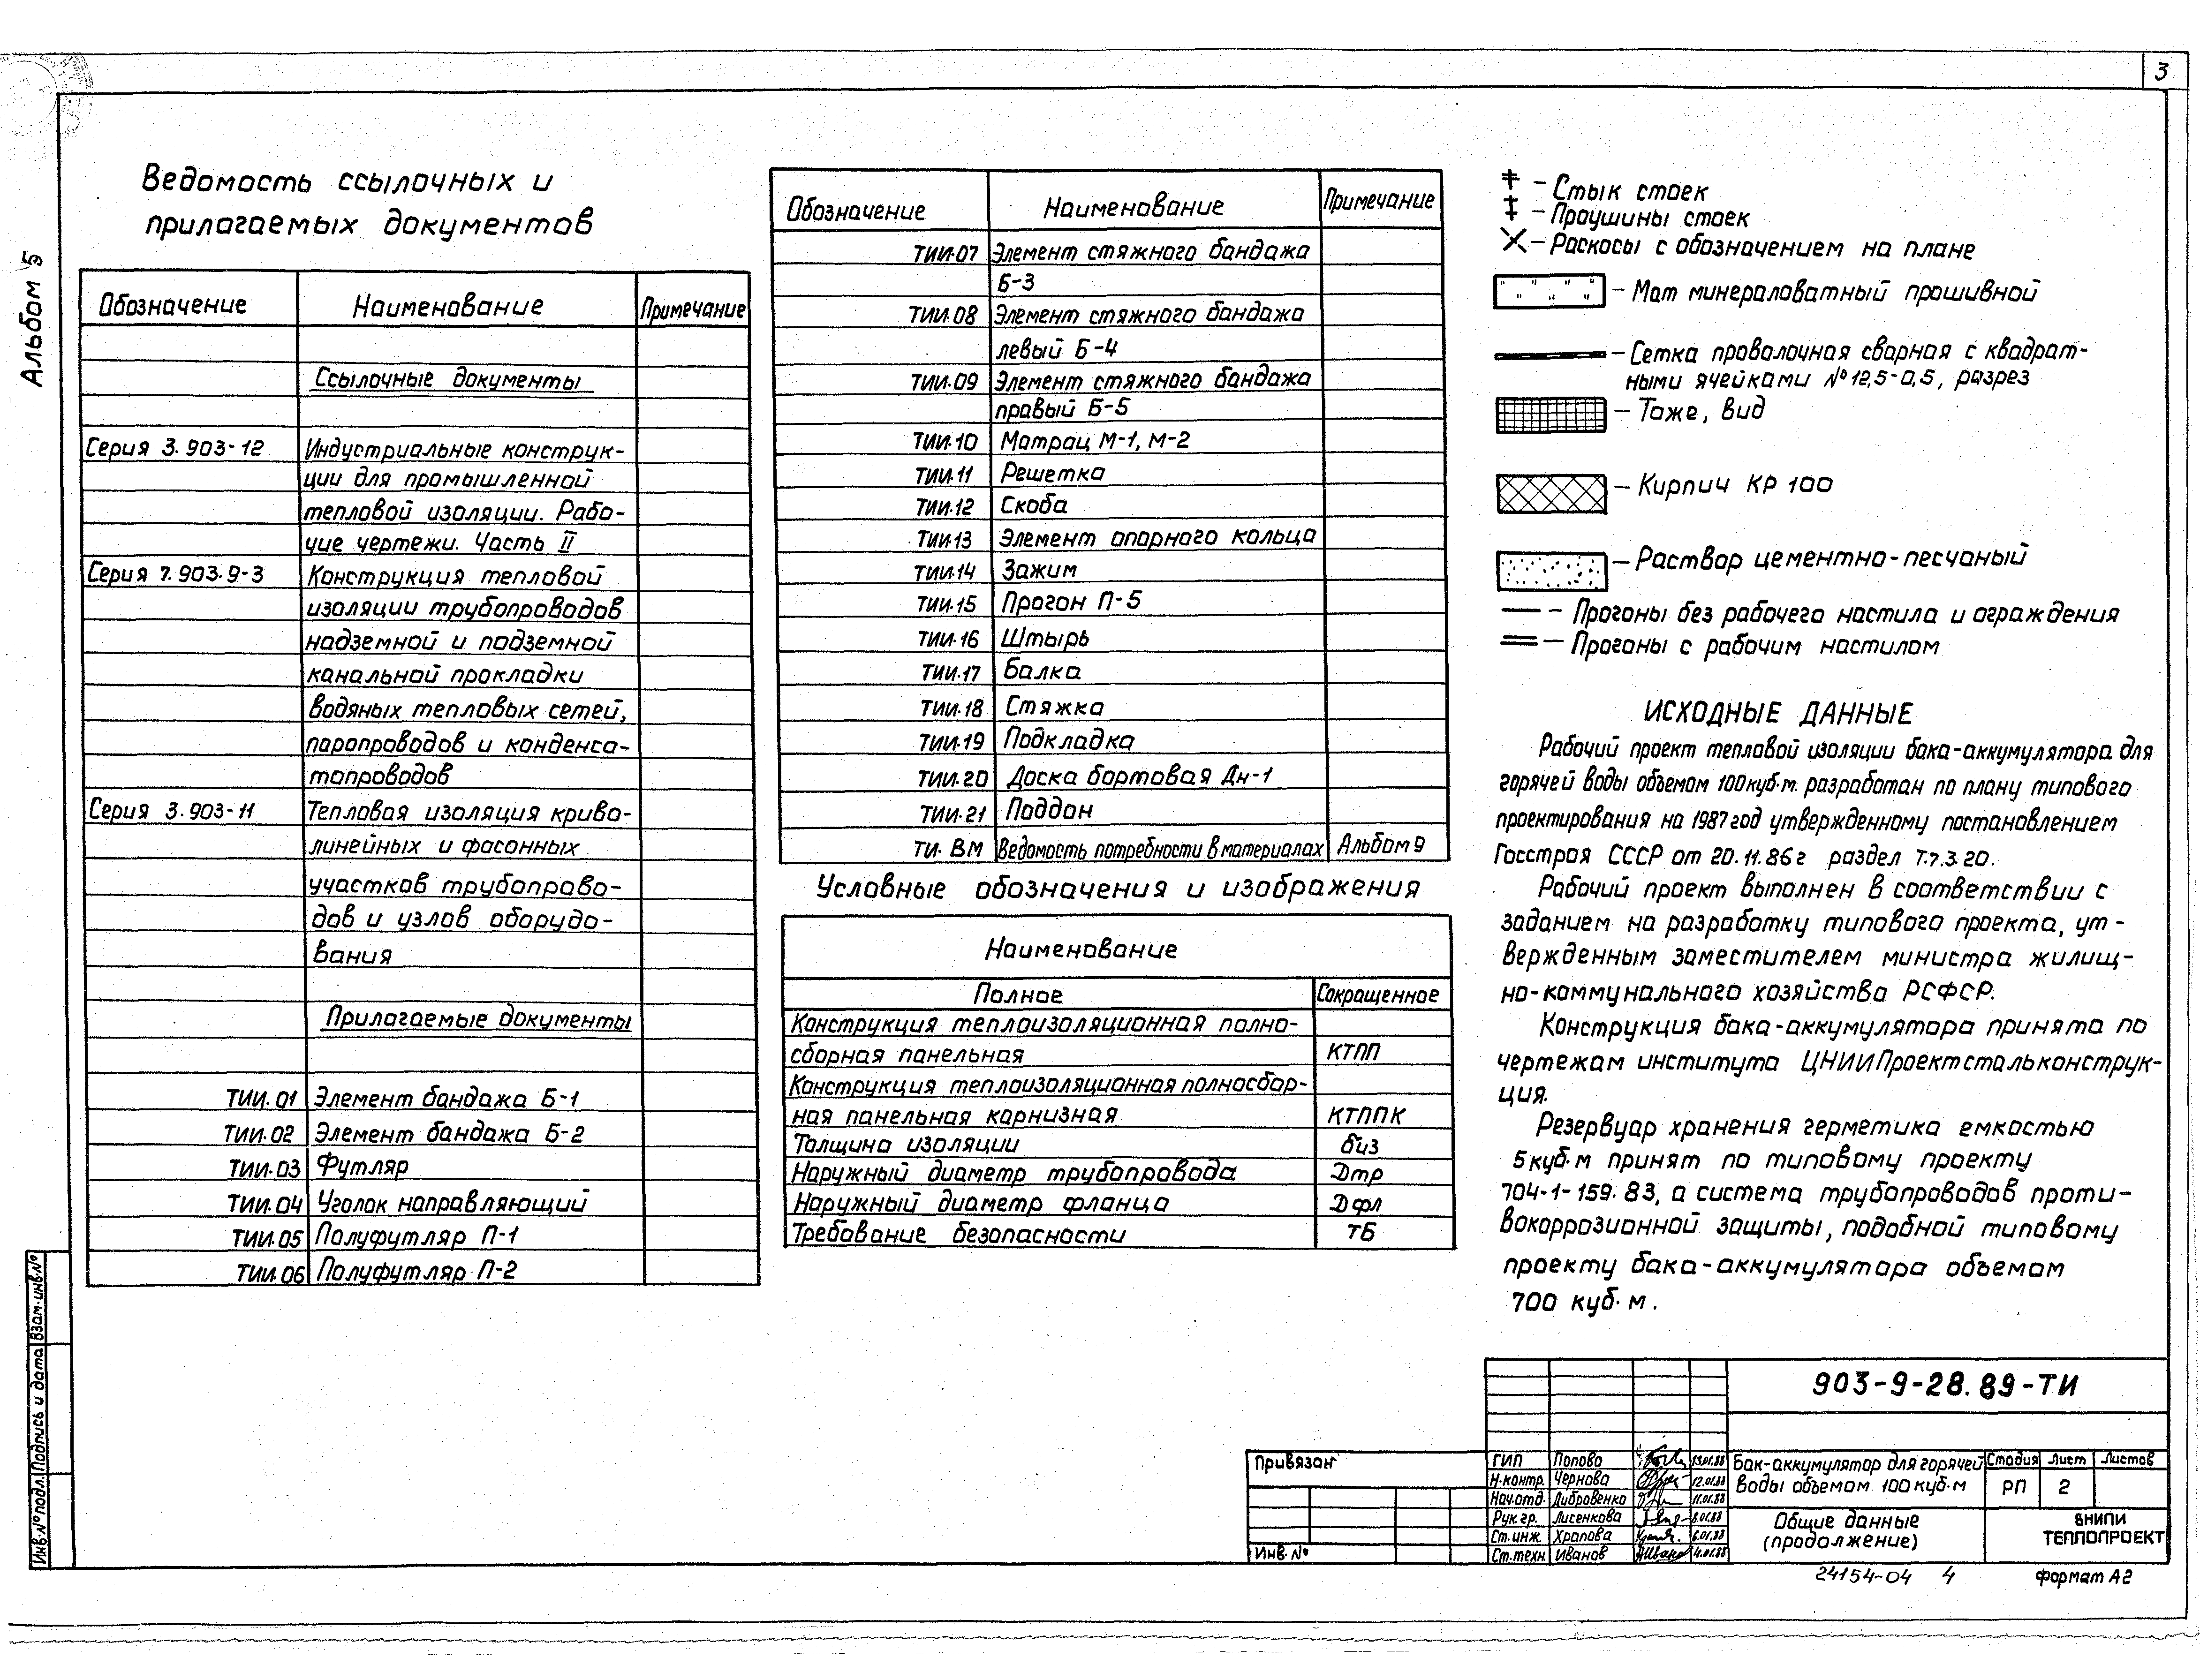 3
Альбом 5
Ведомость ссылочных и
прилагаемых документов
Обозначение Наименование Примечание
Ссылочные документы
Серия 3.903-12 Индустриальные конструк-
ции для промышленной
тепловой изоляции. Рабо-
чие чертежи. Часть II
Серия 7.903.9-3 Конструкция тепловой
изоляции трубопроводов
надземной и подземной
канальной прокладки
водяных тепловых сетей,
паропроводов и конденса-
топроводов
Серия 3.903-11 Тепловая изоляция криво-
линейных и фасонных
участков трубопрово-
дов и узлов оборудо-
вания
Прилагаемые документы
ТИИ.01 Элемент бандажа Б-1
ТИИ.02 Элемент бандажа Б-2
ТИИ.03 Футляр
ТИИ.04 Уголок направляющий
ТИИ.05 Полуфутляр П-1
ТИИ.06 Полуфутляр П-2
Обозначение Наименование Примечание
ТИИ.07 Элемент стяжного бандажа
Б-3
ТИИ.08 Элемент стяжного бандажа
левый Б-4
ТИИ.09 Элемент стяжного бандажа
правый Б-5
ТИИ.10 Матрац М-1, М-2
ТИИ.11 Решетка
ТИИ.12 Скоба
ТИИ.13 Элемент опорного кольца
ТИИ.14 Зажим
ТИИ.15 Прогон П-5
ТИИ.16 Штырь
ТИИ.17 Балка
ТИИ.18 Стяжка
ТИИ.19 Подкладка
ТИИ.20 Доска бортовая Дн-1
ТИИ.21 Поддон
ТИ. ВМ Ведомость потребности в материалах Альбом 9
Условные обозначения и изображения
Наименование
Полное Сокращенное
Конструкция теплоизоляционная полно-
сборная панельная КТПП
Конструкция теплоизоляционная полносбор-
ная панельная карнизная КТППК
Толщина изоляции δиз
Наружный диаметр трубопровода Дтр
Наружный диаметр фланца Дфл
Требование безопасности ТБ
– Стык стоек
– Проушины стоек
– Раскосы с обозначением на плане
– Мат минераловатный прошивной
– Сетка проволочная сварная с квадрат-
ными ячейками №12,5-0,5, разрез
– Тоже, вид
– Кирпич КР 100
– Раствор цементно-песчаный
– Прогоны без рабочего настила и ограждения
– Прогоны с рабочим настилом
ИСХОДНЫЕ ДАННЫЕ
Рабочий проект тепловой изоляции бака-аккумулятора для
горячей воды объемом 100куб.м. разработан по плану типового
проектирования на 1987 год утвержденному постановлением
Госстроя СССР от 20.11.86г раздел Т.7.3.20.
Рабочий проект выполнен в соответствии с
заданием на разработку типового проекта, ут-
вержденным заместителем министра жилищ-
но-коммунального хозяйства РСФСР.
Конструкция бака-аккумулятора принята по
чертежам института ЦНИИПроектстальконструк-
ция.
Резервуар хранения герметика емкостью
5куб.м принят по типовому проекту
704-1-159.83, а система трубопроводов проти-
вокоррозионной защиты, подобной типовому
проекту бака-аккумулятора объемом
700 куб.м.
903-9-28.89-ТИ
Привязан
Инв.№
ГИП Попова 13.01.88
Н.контр. Чернова 12.01.88
Нач.отд. Дибровенко 11.01.88
Рук.гр. Лисенкова 8.01.88
Ст.инж. Храпова 6.01.88
Ст.техн. Иванов 4.01.88
Бак-аккумулятор для горячей
воды объемом 100 куб.м
Стадия Лист Листов
РП 2
Общие данные
(продолжение)
ВНИПИ
ТЕПЛОПРОЕКТ
24154-04 4
формат А2
Инв.№подл. Подпись и дата Взам.инв.№